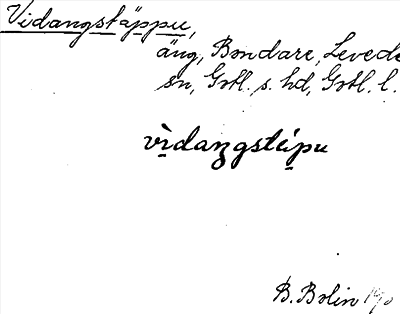 Vidangstäppu,
äng, Bondare, Levede
sn, Gotl. s. hd, Gotl. l.
vìdaŋgstäpu
B. Bolin